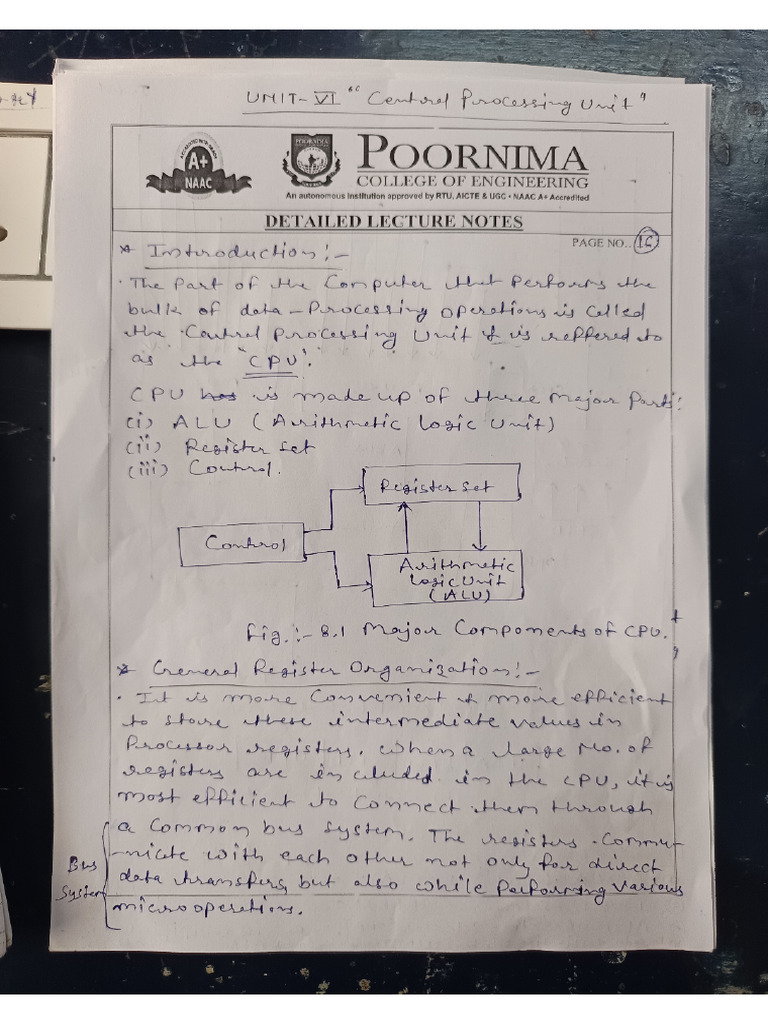 UNIT-VI "Central Processing Unit"
A+
NAAC
POORNIMA
POORNIMA
COLLEGE OF ENGINEERING
An autonomous institution approved by RTU, AICTE & UGC • NAAC A+ Accredited
DETAILED LECTURE NOTES
PAGE NO..
* Introduction:-
• The Part of the Computer that Performs the
bulk of data-Processing operations is called
the Central Processing Unit & is reffered to
as the "CPU".
CPU has is made up of three Major Parts:
(i) ALU (Arithmetic Logic Unit)
(ii) Register set
(iii) Control.
Register set
Control
Arithmetic
Logic Unit
(ALU)
Fig.:- 8.1 Major Components of CPU.
* General Register Organization:-
• It is more Convenient & more efficient
to store these intermediate values in
Processor registers. When a large No. of
registers are in cluded in the CPU, it is
most efficient to Connect them through
a Common bus system. The registers Commu-
-nicate with each other not only for direct
data transfers, but also while Performing various
microoperations.
Bus
System